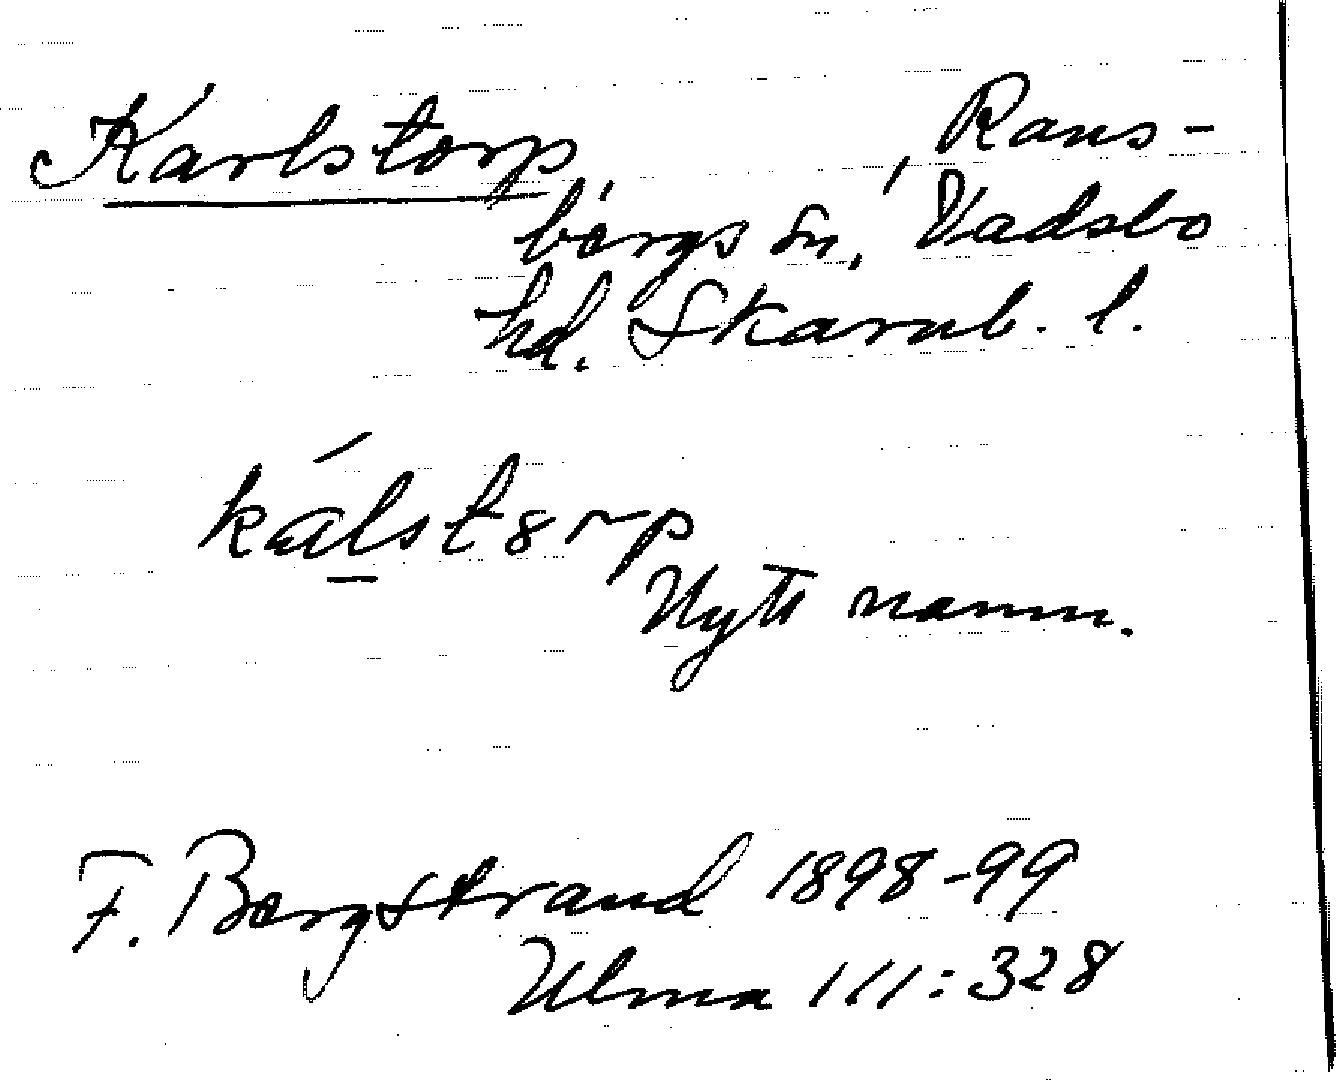 Karlstorp, Rans-
bergs sn, Vadsbo
hd. Skarab. l.
kálstorp
Nytt namn.
F. Bergstrand 1898-99
Ulma 111:328